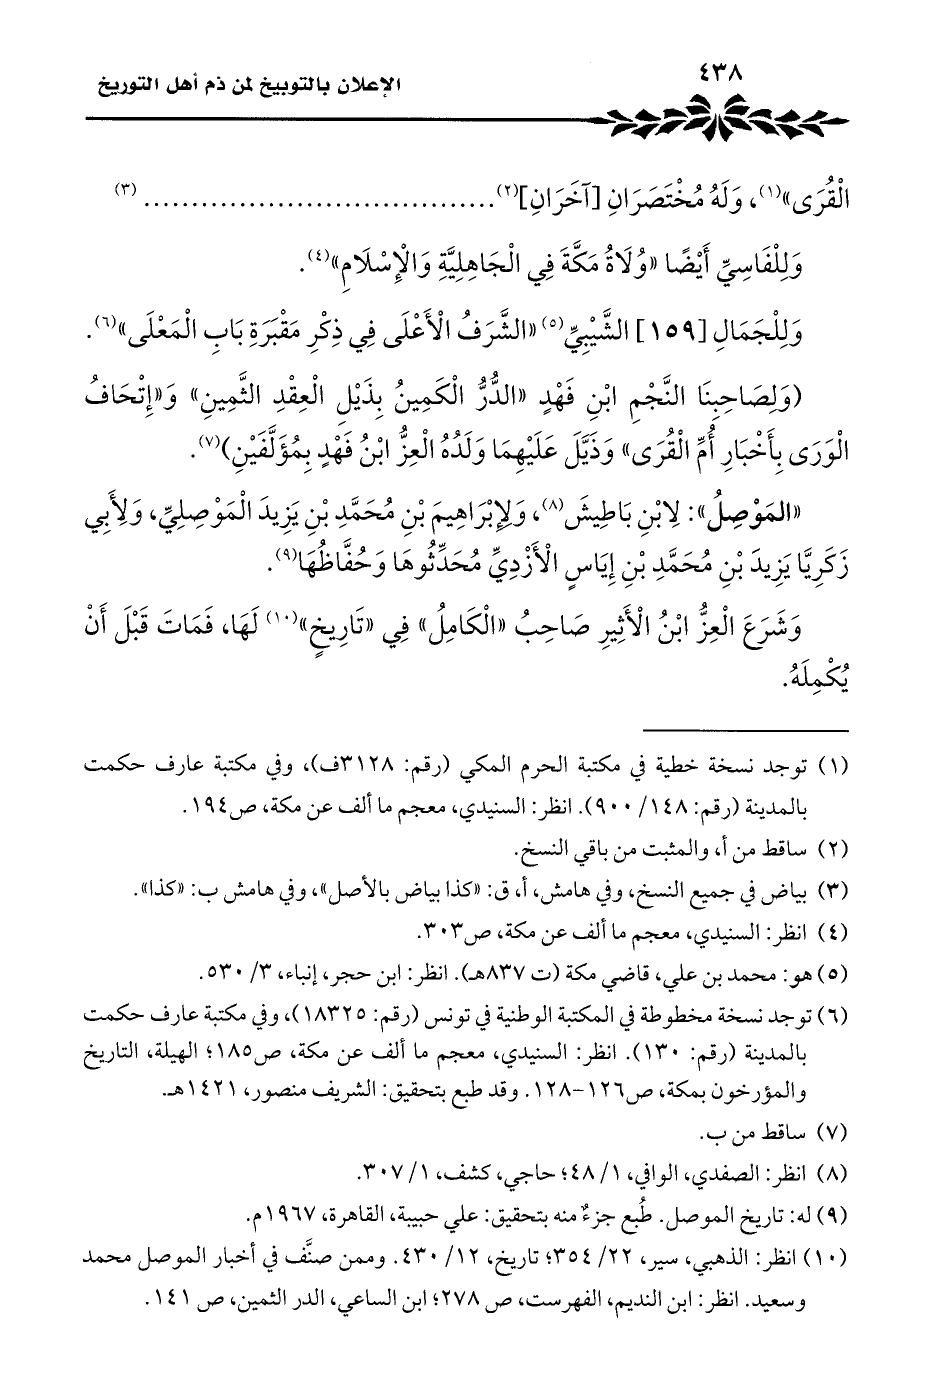 ٤٣٨
الإعلان بالتوبيخ لمن ذم أهل التوريخ
الْقُرَى»(١)، وَلَهُ مُخْتَصَرَانِ [آخَرَانِ](٢)..................................... (٣)
وَلِلْفَاسِيِّ أَيْضًا «وُلَاةُ مَكَّةَ فِي الْجَاهِلِيَّةِ وَالْإِسْلَامِ»(٤).
وَلِلْجَمَالِ [١٥٩] الشَّيْبِيِّ(٥) «الشَّرَفُ الْأَعْلَى فِي ذِكْرِ مَقْبَرَةِ بَابِ الْمَعْلَى»(٦).
(وَلِصَاحِبِنَا النَّجْمِ ابْنِ فَهْدٍ «الدُّرُّ الْكَمِينُ بِذَيْلِ الْعِقْدِ الثَّمِينِ» وَ«إِتْحَافُ
الْوَرَى بِأَخْبَارِ أُمِّ الْقُرَى» وَذَيَّلَ عَلَيْهِمَا وَلَدُهُ الْعِزُّ ابْنُ فَهْدٍ بِمُؤَلَّفَيْنِ)(٧).
«المَوْصِلُ»: لِابْنِ بَاطِيشَ(٨)، وَلِإِبْرَاهِيمَ بْنِ مُحَمَّدِ بْنِ يَزِيدَ الْمَوْصِلِيِّ، وَلِأَبِي
زَكَرِيَّا يَزِيدَ بْنِ مُحَمَّدِ بْنِ إِيَاسٍ الْأَزْدِيِّ مُحَدِّثُوهَا وَحُفَّاظُهَا(٩).
وَشَرَعَ الْعِزُّ ابْنُ الْأَثِيرِ صَاحِبُ «الْكَامِلُ» فِي «تَارِيخٍ»(١٠) لَهَا، فَمَاتَ قَبْلَ أَنْ
يُكْمِلَهُ.
(١) توجد نسخة خطية في مكتبة الحرم المكي (رقم: ٣١٢٨ف)، وفي مكتبة عارف حكمت
بالمدينة (رقم: ١٤٨/ ٩٠٠). انظر: السنيدي، معجم ما ألف عن مكة، ص١٩٤.
(٢) ساقط من أ، والمثبت من باقي النسخ.
(٣) بياض في جميع النسخ، وفي هامش، أ، ق: «كذا بياض بالأصل»، وفي هامش ب: «كذا».
(٤) انظر: السنيدي، معجم ما ألف عن مكة، ص٣٠٣.
(٥) هو: محمد بن علي، قاضي مكة (ت ٨٣٧هـ). انظر: ابن حجر، إنباء، ٣/ ٥٣٠.
(٦) توجد نسخة مخطوطة في المكتبة الوطنية في تونس (رقم: ١٨٣٢٥)، وفي مكتبة عارف حكمت
بالمدينة (رقم: ١٣٠). انظر: السنيدي، معجم ما ألف عن مكة، ص١٨٥؛ الهيلة، التاريخ
والمؤرخون بمكة، ص١٢٦-١٢٨. وقد طبع بتحقيق: الشريف منصور، ١٤٢١هـ.
(٧) ساقط من ب.
(٨) انظر: الصفدي، الوافي، ١/ ٤٨؛ حاجي، كشف، ١/ ٣٠٧.
(٩) له: تاريخ الموصل. طُبع جزءٌ منه بتحقيق: علي حبيبة، القاهرة، ١٩٦٧م.
(١٠) انظر: الذهبي، سير، ٢٢/ ٣٥٤؛ تاريخ، ١٢/ ٤٣٠. وممن صنَّف في أخبار الموصل محمد
وسعيد. انظر: ابن النديم، الفهرست، ص ٢٧٨؛ ابن الساعي، الدر الثمين، ص ١٤١.